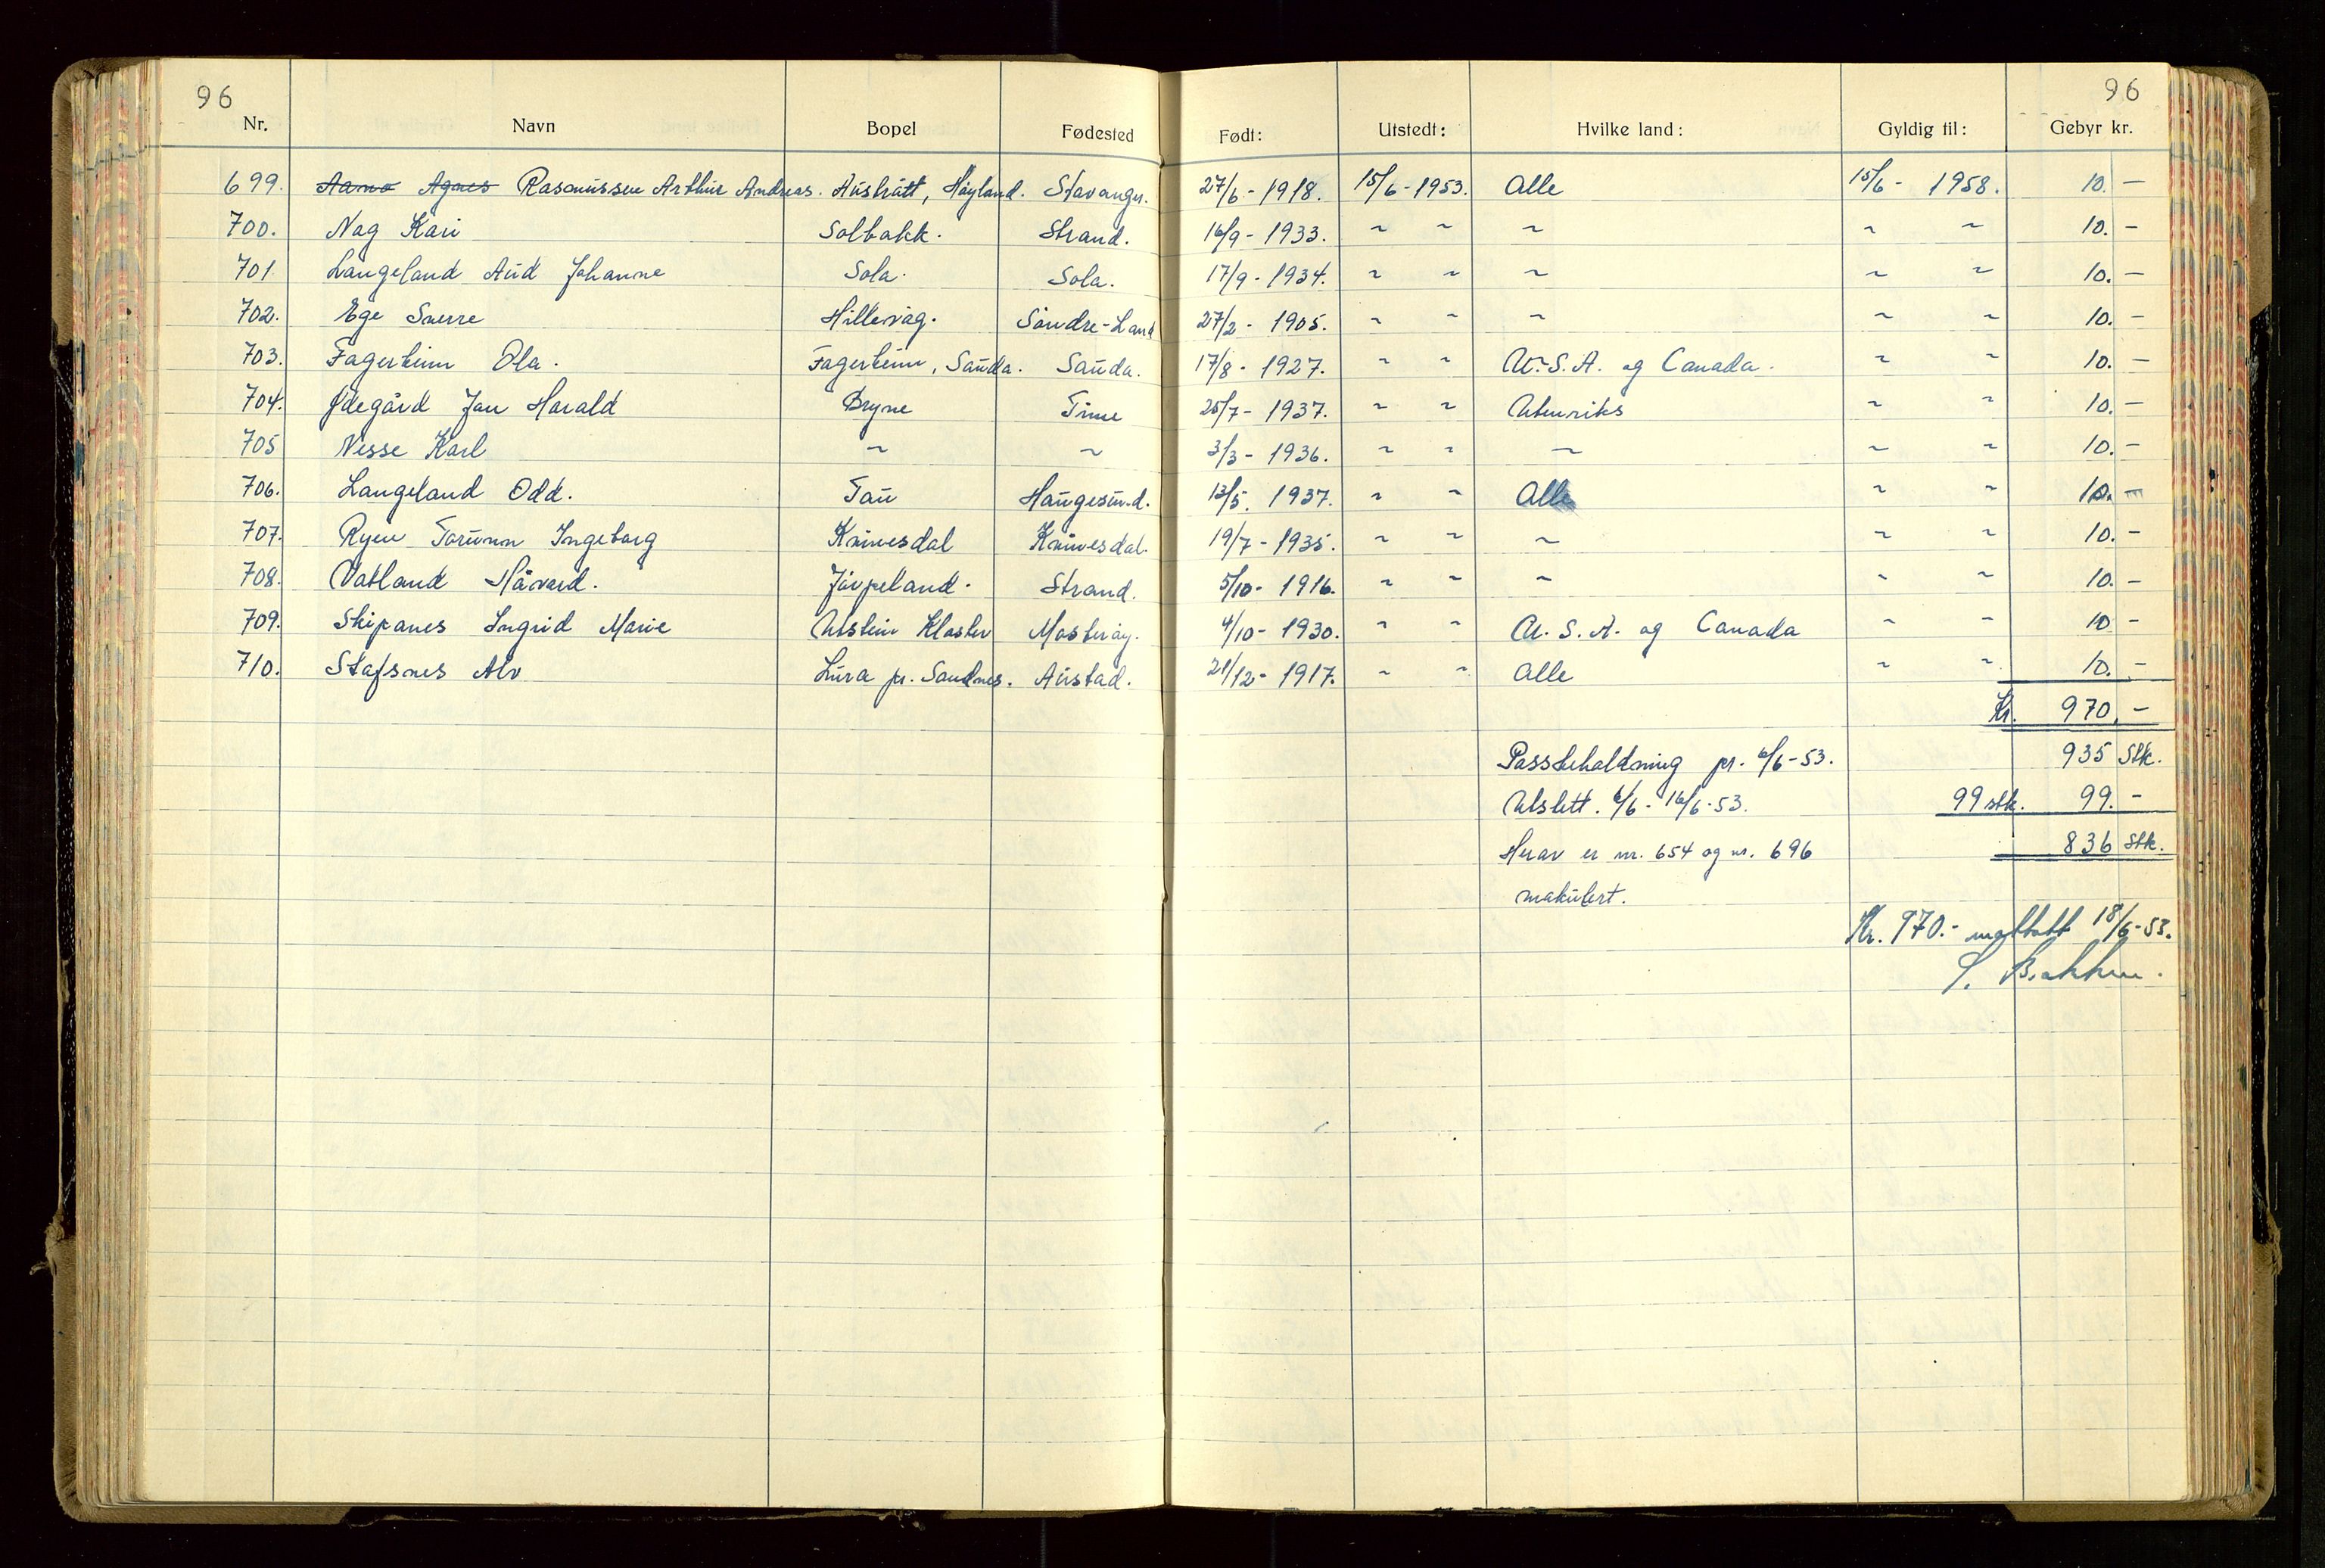 96 96
Nr. Navn Bopel Fødested Født: Utstedt: Hvilke land: Gyldig til: Gebyr kr.
699. Aamo Agnes Rasmussen Arthur Andreas. Austrått, Høyland. Stavanger. 27/6 - 1918. 15/6 - 1953. Alle 15/6 - 1958. 10. -
700. Nag Kari Solbakk. Strand. 16/9 - 1933. " " " " " 10. -
701 Langeland Aud Johanne Sola. Sola. 17/9 - 1934. " " " " " 10. -
702. Ege Sverre Hillevåg. Søndre-Land 27/2 - 1905. " " " " " 10. -
703. Fagerheim Ola. Fagerheim, Sauda. Sauda. 17/8 - 1927. " " U.S.A. og Canada. " " 10. -
704. Ødegård Jan Harald Bryne Time 25/7 - 1937. " " Utenriks " " 10. -
705 Nesse Karl " " 3/3 - 1936. " " " " " 10. -
706. Langeland Odd. Tau Haugesund. 13/5. 1937. " " Alle " " 10. -
707. Ryen Torunn Ingeborg Knivesdal Knivesdal. 19/7 - 1935. " " " " " 10. -
708. Vatland Håvard. Jørpeland. Strand. 5/10 - 1916. " " " " " 10. -
709. Skipanes Ingrid Marie Utstein Kloster Mosterøy. 4/10 - 1930. " " U.S.A. og Canada " " 10 -
710. Stafsnes Alv Lura pr. Sandnes. Austad. 21/12 - 1917. " " Alle " " 10. -
Kr. 970. -
Passbeholdning pr. 6/6 - 53. 935 Stk.
Utstett. 6/6 - 16/6 - 53. 99 stk. 99. -
Herav er nr. 654 og nr. 696 836 Stk.
makulert.
Kr. 970.- mottatt 18/6-53.